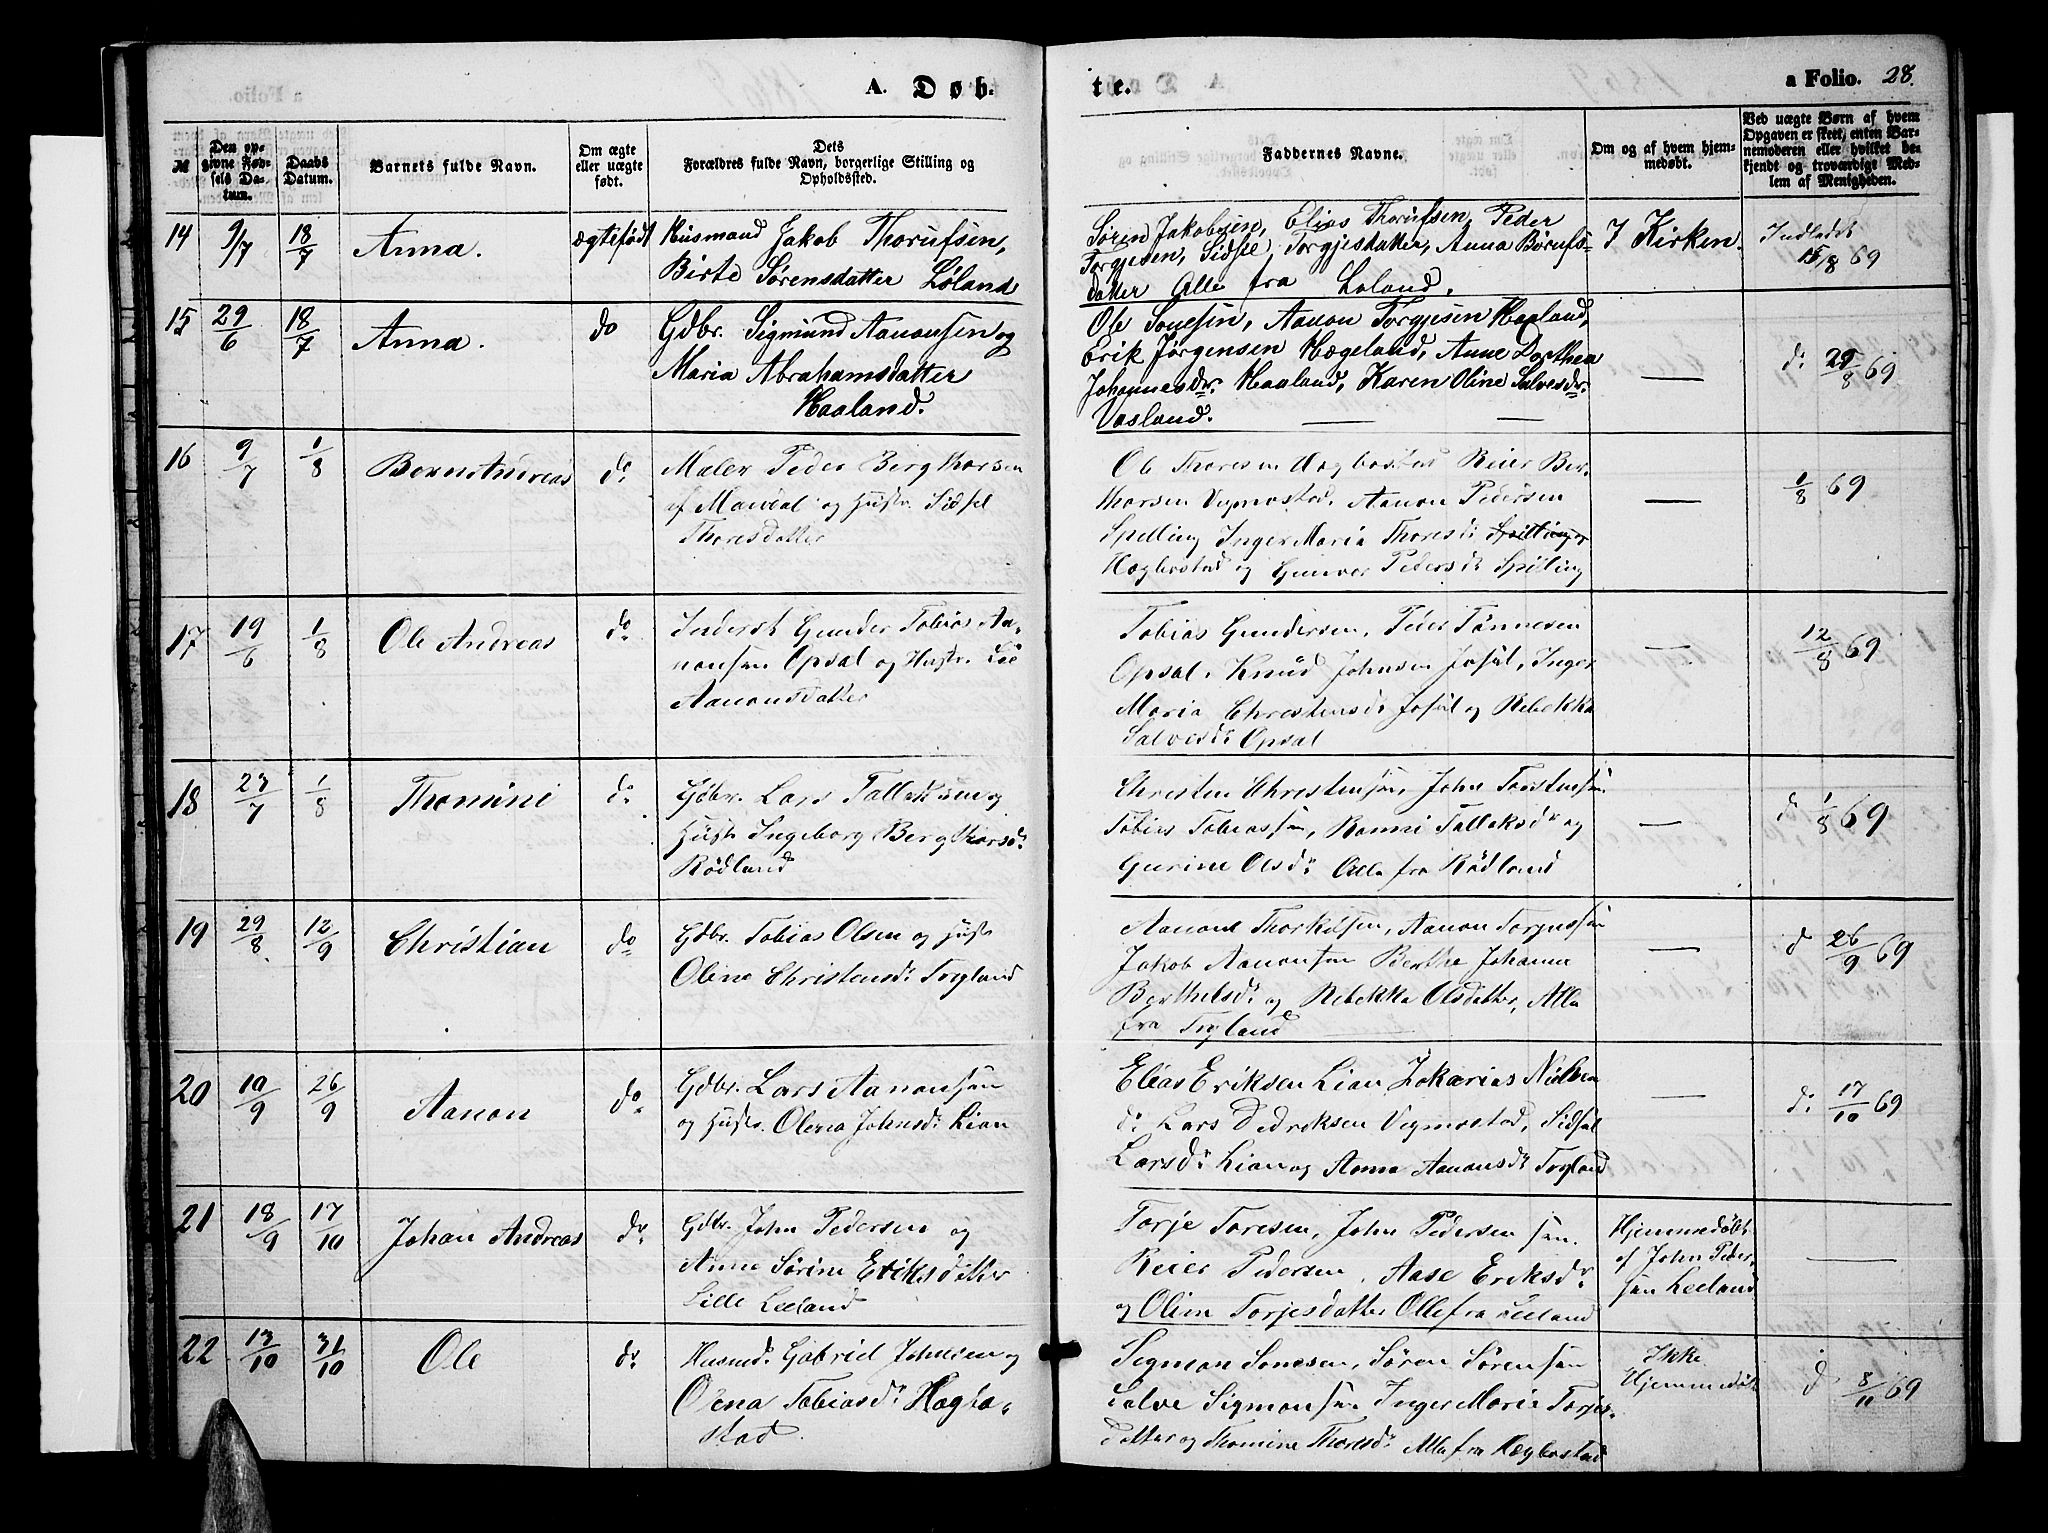 A. Døb-
te.
a Folio. 28.
№
Den op-
givne Fød-
sels Da-
tum.
Daabs
Datum.
Barnets fulde Navn.
Om ægte
eller uægte
født.
Dets
Forældres fulde Navn, borgerlige Stilling og
Opholdssted.
Faddernes Navne.
Om og af hvem hjem-
medøbt.
Ved uægte Børn af hvem
Opgaven er skeet, enten Bar-
nemoderen eller hvilket be-
kjendt og troværdigt Med-
lem af Menigheden.
14 9/7 18/7 Anna. ægtefødt
Husmand Jakob Thorufsen,
Birte Sørensdatter Løland
Søren Jakobsen, Elias Thorufsen, Peder
Torgjesen, Sidsel Torgjesdatter, Anna Børufs-
datter Alle fra Løland.
I Kirken.
Indledet
15/8 69
15 29/6 18/7 Anna. do
Gdbr. Sigmund Aanonsen og
Maria Abrahamsdatter
Haaland.
Ole Sonesen, Aanon Torgjesen Haaland,
Erik Jørgensen Hægeland, Anne Dorthea
Johannesdr. Haaland, Karen Oline Salvesdr.
Vasland.
—
do 29/8 69
16 9/7 1/8 Berntandreas do
Maler Peder Bergthorsen
af Mandal og Hustr. Sidsel
Thoresdatter
Ole Thoresen Høgbostad Reier Ber-
thorsen Vigmostad, Aanon Pedersen
Spilling Inger Maria Thoresdr
Hægbostad og Gunvor Pedersdr Spilling
—
1/8 69
17 19/6 1/8 Ole Andreas do
Inderst Gunder Tobias Aa-
nonsen Opsal og Hustr.
Aanonsdatter
Tobias Gundersen, Peder Tønnesen
Opsal, Knud Johnsen Josul, Inger
Maria Christensdr Josul og Rebekka
Salvesdr Opsal
—
12/8 69
18 23/7 1/8 Thomine do
Gdbr. Lars Tallaksen og
Hustr Ingeborg Bergthorsdr.
Rødland
Christen Christensen, John Torstensen
Tobias Tobiassen, Ranni Tallaksdr og
Gurine Olsdr Alle fra Rødland
—
do 1/8 69
19 29/8 12/9 Christian do
Gdbr. Tobias Olsen og Hustr
Oline Christensdr Trygland
Aanond Thorkelsen, Aanon Torjussen
Jakob Aanonsen Berthe Johanne
Berthelsdr og Rebekka Olsdatter, Alle
fra Trygland
—
d 26/9 69
20 10/9 26/9 Aanon do
Gdbr. Lars Aanonsen
og Hustr. Olena Johnsdr Lian
Elias Eriksen Lian Zakarias Nielsen
do Lars Didriksen Vigmostad, Sidsel
Larsdr Lian og Anna Aanonsdr Trygland
—
do 17/10 69
21 18/9 17/10 Johan Andreas do
Gdbr. John Pedersen og
Anne Sørine Eriksdatter
Lille Leeland
Torje Toresen, John Pedersen sen.
Reier Pedersen, Aase Eriksdr
og Oline Torjesdatter Alle fra Leeland
Hjemmedøbt
af John Peder-
sen Leeland
—
22 13/10 31/10 Ole do
Husmd. Gabriel Johnsen og
Olena Tobiasdr Hægbo-
stad.
Sigmon Sonesen, Søren Sørensen
Salve Sigmonsen Inger Marie Torjes-
datter og Thomine Thoresdr Alle fra Hægbostad
Ikke
Hjemmedøbt
d 8/11 69